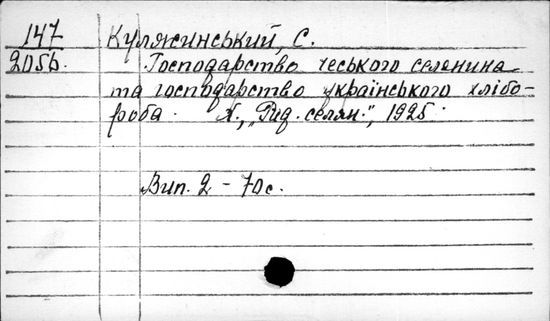 147
205б.
Куляжинський, С.
Господарство чеського селянина
та господарство українського хлібо-
роба. Х., „Рад. селян.", 1925.
Вип. 2 - 70с.